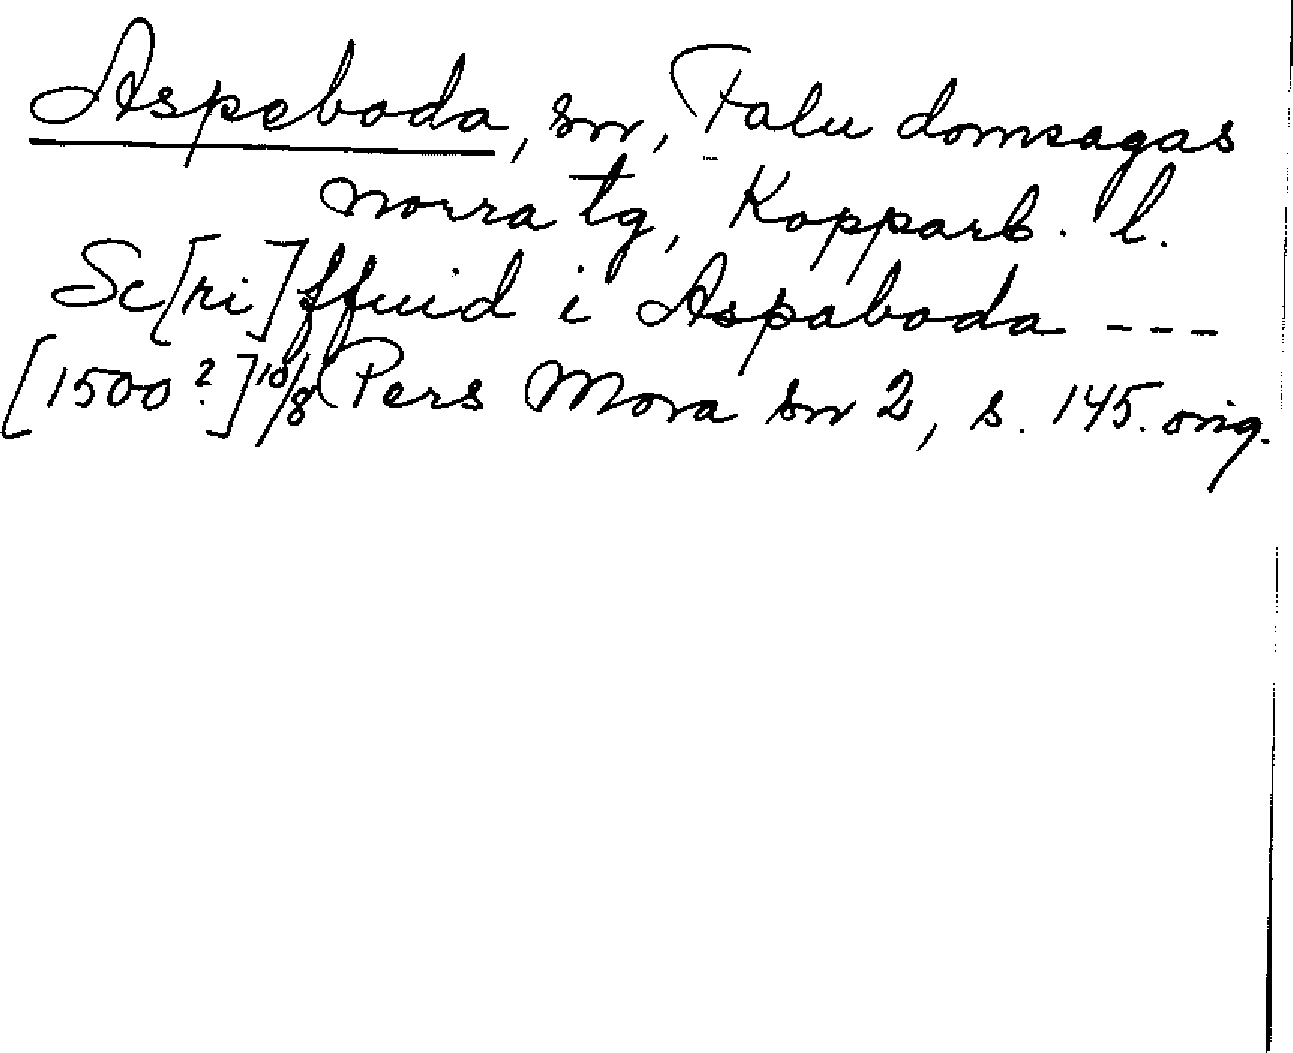 Aspeboda, sn, Falu domsagas
norra tg, Kopparb. l.
Sc[ri]ffuid i Aspaboda ---
[1500?] 10/8 Pers Mora sn 2, s. 145. orig.